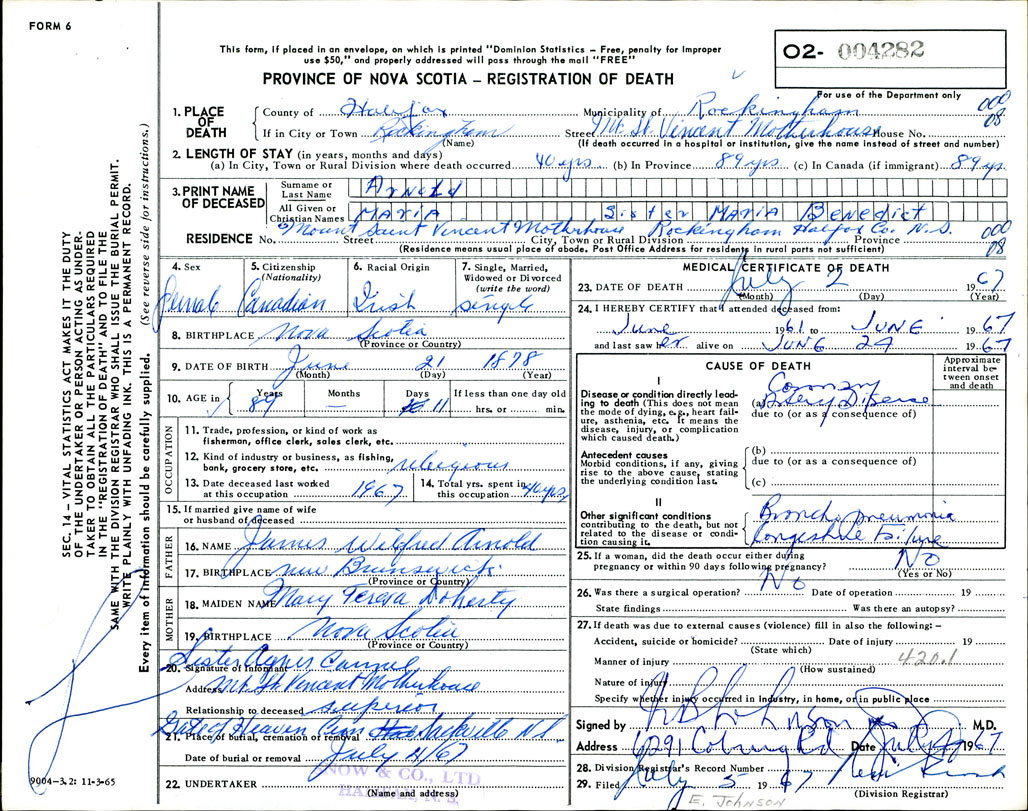 FORM 6
This form, if placed in an envelope, on which is printed "Dominion Statistics – Free, penalty for improper
use $50," and properly addressed will pass through the mail "FREE"
PROVINCE OF NOVA SCOTIA – REGISTRATION OF DEATH
02- 004282
For use of the Department only
000
08
1. PLACE OF DEATH
County of Halifax Municipality of Rockingham
If in City or Town Rockingham Street Mt. St. Vincent Motherhouse House No.
(Name) (If death occurred in a hospital or institution, give the name instead of street and number)
2. LENGTH OF STAY (in years, months and days)
(a) In City, Town or Rural Division where death occurred 40 yrs (b) In Province 89 yrs (c) In Canada (if immigrant) 89 yrs
3. PRINT NAME OF DECEASED
Surname or Last Name Arnold
All Given or Christian Names MARIA Sister MARIA Benedict
Mount Saint Vincent Motherhouse Rockingham Halifax Co. N.S. 000
RESIDENCE No. Street City, Town or Rural Division Province 08
(Residence means usual place of abode. Post Office Address for residents in rural parts not sufficient)
4. Sex Female
5. Citizenship (Nationality) Canadian
6. Racial Origin Irish
7. Single, Married, Widowed or Divorced (write the word) single
8. BIRTHPLACE Nova Scotia
(Province or Country)
9. DATE OF BIRTH June 21 1878
(Month) (Day) (Year)
10. AGE in Years 89 Months — Days 11 If less than one day old hrs. or min.
OCCUPATION
11. Trade, profession, or kind of work as
fisherman, office clerk, sales clerk, etc.
12. Kind of industry or business, as fishing,
bank, grocery store, etc. religious
13. Date deceased last worked
at this occupation 1967
14. Total yrs. spent in
this occupation 40 yrs
15. If married give name of wife
or husband of deceased
FATHER
16. NAME James Wilfred Arnold
17. BIRTHPLACE New Brunswick
(Province or Country)
MOTHER
18. MAIDEN NAME Mary Teresa Doherty
19. BIRTHPLACE Nova Scotia
(Province or Country)
Sister Agnes
20. Signature of Informant
Address Mt. St. Vincent Motherhouse
Relationship to deceased superior
Gate of Heaven Cem Sackville N.S.
21. Place of burial, cremation or removal
Date of burial or removal July 4/67
SNOW & CO., LTD
HALIFAX, N. S.
22. UNDERTAKER
(Name and address)
MEDICAL CERTIFICATE OF DEATH
23. DATE OF DEATH July 2 1967
(Month) (Day) (Year)
24. I HEREBY CERTIFY that I attended deceased from:
June 1961 to JUNE 1967
and last saw her alive on JUNE 29 1967
CAUSE OF DEATH
Approximate interval between onset and death
I
Disease or condition directly leading to death (This does not
mean the mode of dying, e.g., heart failure, asthenia, etc. It means the
disease, injury, or complication
which caused death.)
(a) Coronary
Artery Disease
due to (or as a consequence of)
Antecedent causes
Morbid conditions, if any, giving
rise to the above cause, stating
the underlying condition last.
(b)
due to (or as a consequence of)
(c)
II
Other significant conditions
contributing to the death, but not
related to the disease or condition causing it.
Broncho pneumonia
Congestive Failure
25. If a woman, did the death occur either during
pregnancy or within 90 days following pregnancy? No
(Yes or No)
26. Was there a surgical operation? No Date of operation 19
State findings Was there an autopsy?
27. If death was due to external causes (violence) fill in also the following: –
Accident, suicide or homicide? Date of injury 19
(State which) 420.1
Manner of injury
(How sustained)
Nature of injury
Specify whether injury occurred in industry, in home, or in public place
Signed by Johnson M.D.
Address 6291 Coburg Rd Date July 1967
28. Division Registrar's Record Number
29. Filed July 5 1967
(Division Registrar)
E. JOHNSON
SEC. 14 – VITAL STATISTICS ACT MAKES IT THE DUTY
OF THE UNDERTAKER OR PERSON ACTING AS UNDER-
TAKER TO OBTAIN ALL THE PARTICULARS REQUIRED
IN THE "REGISTRATION OF DEATH" AND TO FILE THE
SAME WITH THE DIVISION REGISTRAR WHO SHALL ISSUE THE BURIAL PERMIT.
WRITE PLAINLY WITH UNFADING INK. THIS IS A PERMANENT RECORD.
Every item of information should be carefully supplied. (See reverse side for instructions.)
9004-3.2: 11-3-65